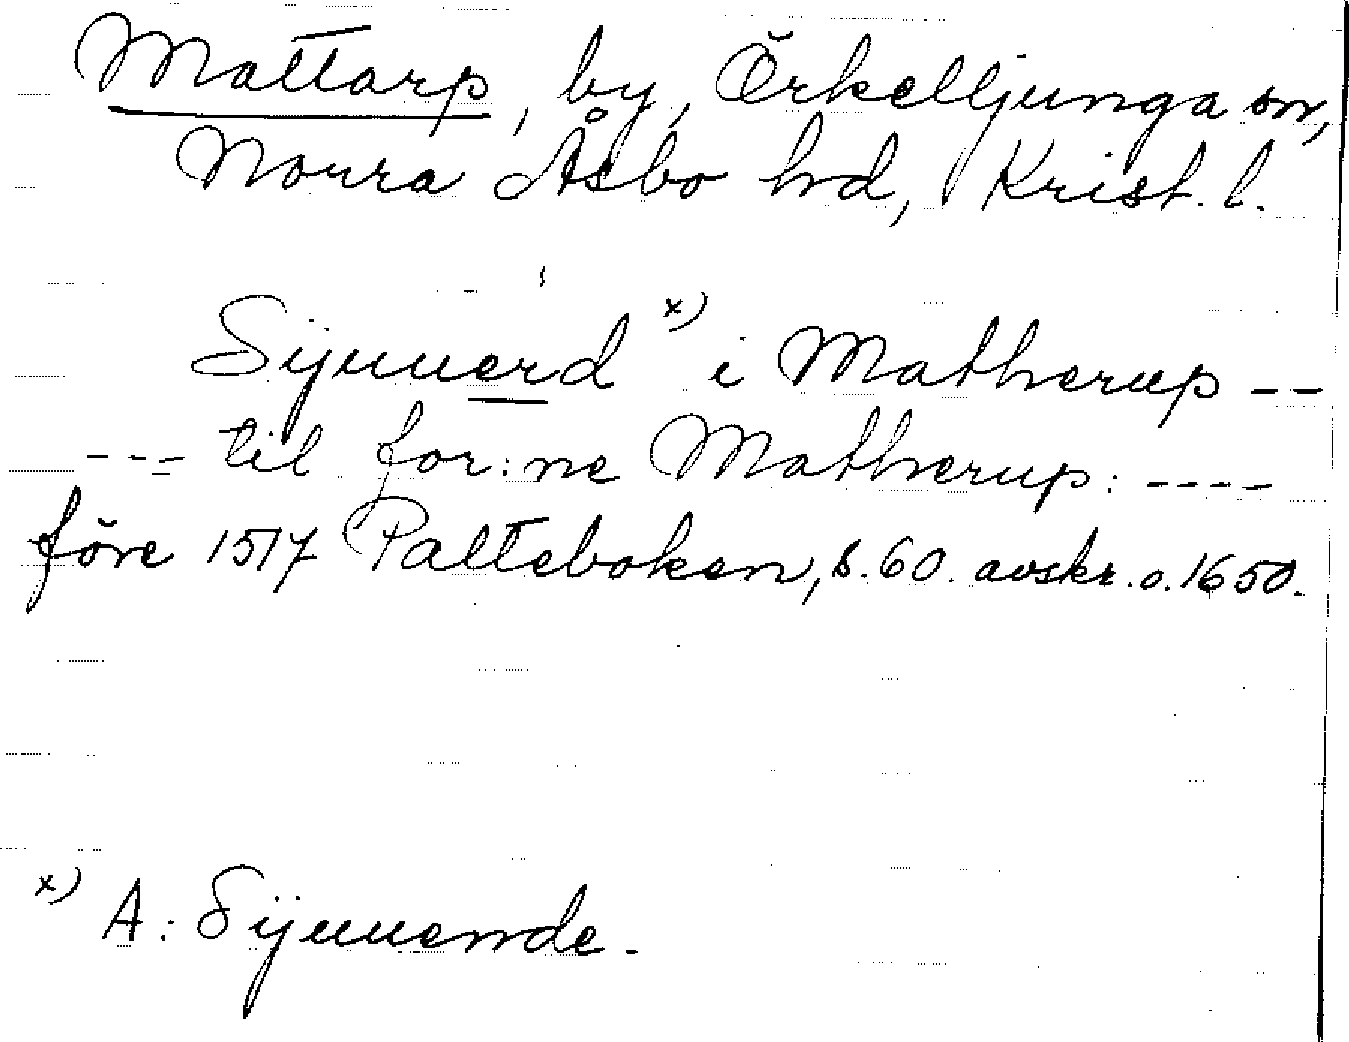 Mattarp, by, Örkelljunga sn,
Norra Åsbo hd, Krist. l.
Sÿuuerd x) i Matherup --
--- til for:ne Matherup: ----
före 1517 Palteboken, s. 60. avskr. o. 1650.
x) A: Sÿuuende.